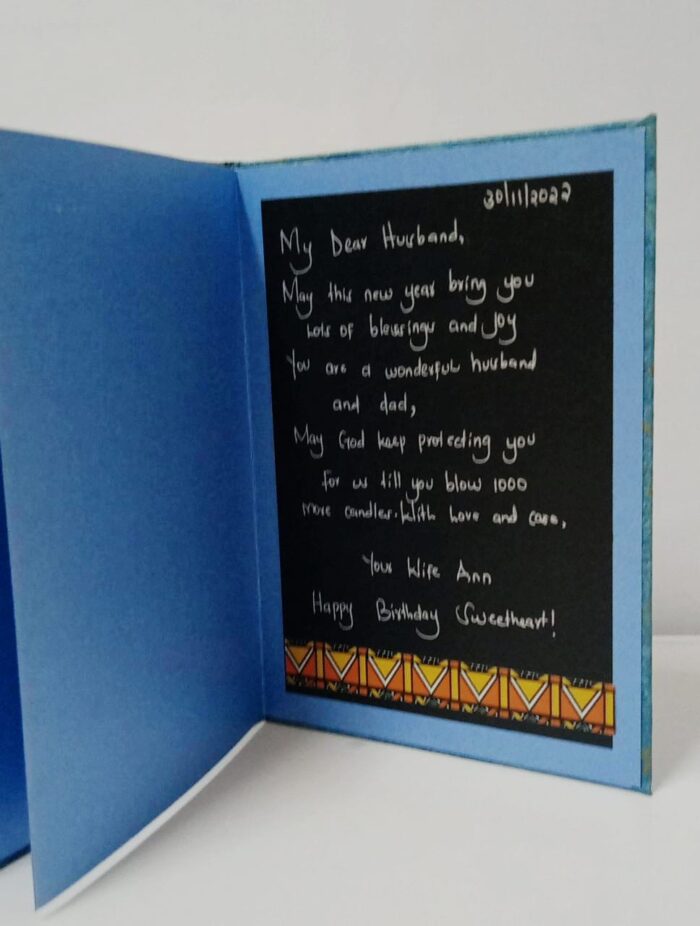 30/11/2022
My Dear Husband,
May this new year bring you
Lots of blessings and Joy
You are a wonderful husband
and dad,
May God keep protecting you
for us till you blow 1000
more candles. With Love and care,
Your Wife Ann
Happy Birthday Sweetheart!